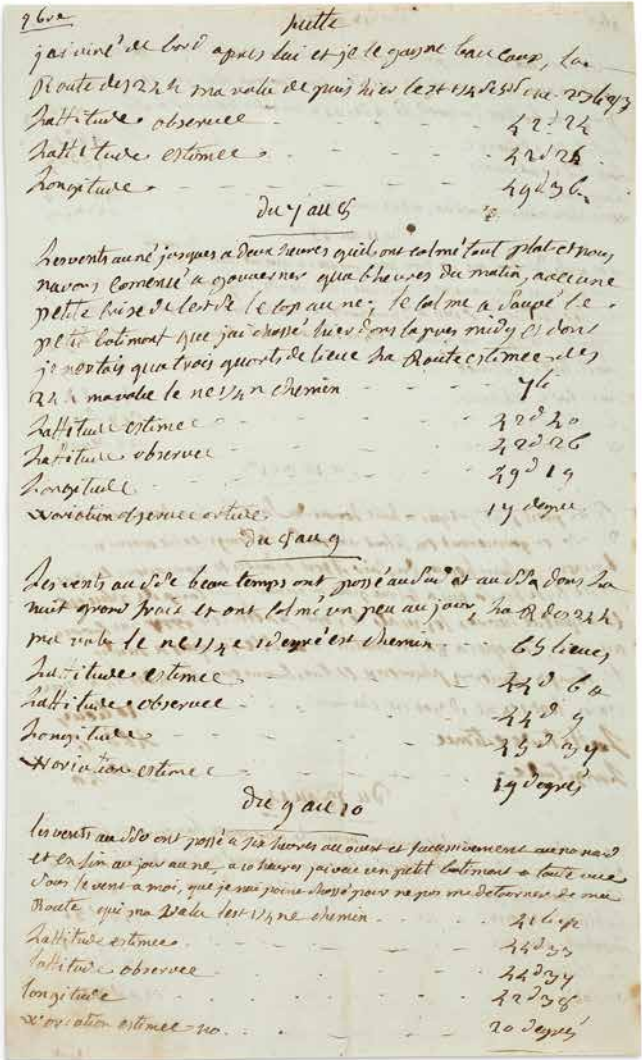 9bre
suitte
j'ai viré de bord apres lui et je le gagne beaucoup, La
Route des 24h ma valu depuis hier lest 1/4 de sud
Lattitude observee - - - 42d 24
Lattitude estimee - - - 42d 26
Longitude - - - 49d 36
du 7 au 8
Les vents au né jusques a deux heures quil ont calmé tout plat et nous
navons comensé a gouverner qua 6 heures du matin, avec une
petite brise de lest de le cap au ne; le calme a sauvé le
petit batiment que jai chassé hier dans lapres midy et dont
je netais qua trois quarts de lieue La Route estimee des
24h ma value le ne 1/4 n chemin - - -
Lattitude estimee - - - 42d 40
Lattitude observee - - - 42d 26
Longitude - - - 49d 19
Variation observee ortive - - - 19 degrés
du 8 au 9
Les vents au sse beau temps ont passé au sud et au sso dans La
nuit grand frais et ont calmé un peu au jour, La R des 24h
ma valu le ne 1/4 e 1 degré est chemin - - - 65 lieues
Lattitude estimee - - - 44d
Lattitude observee - - - 44d 9
Longitude - - - 45d 39
Variation estimee - - - 19 degrés
du 9 au 10
les vents au sso ont passé a six heures au ouest et sucussivement au no nord
et en fin au jour au ne, a 10 heures jai vu un petit batiment a toute vue
sous le vent a moi, que je nai point chassé pour ne pas me detourner de ma
Route qui ma valu lest 1/4 ne chemin - - -
Lattitude estimee - - - 44d 33
lattitude observee - - - 44d 39
longitude - - - 42d 38
Variation estimee no - - - 20 degrés